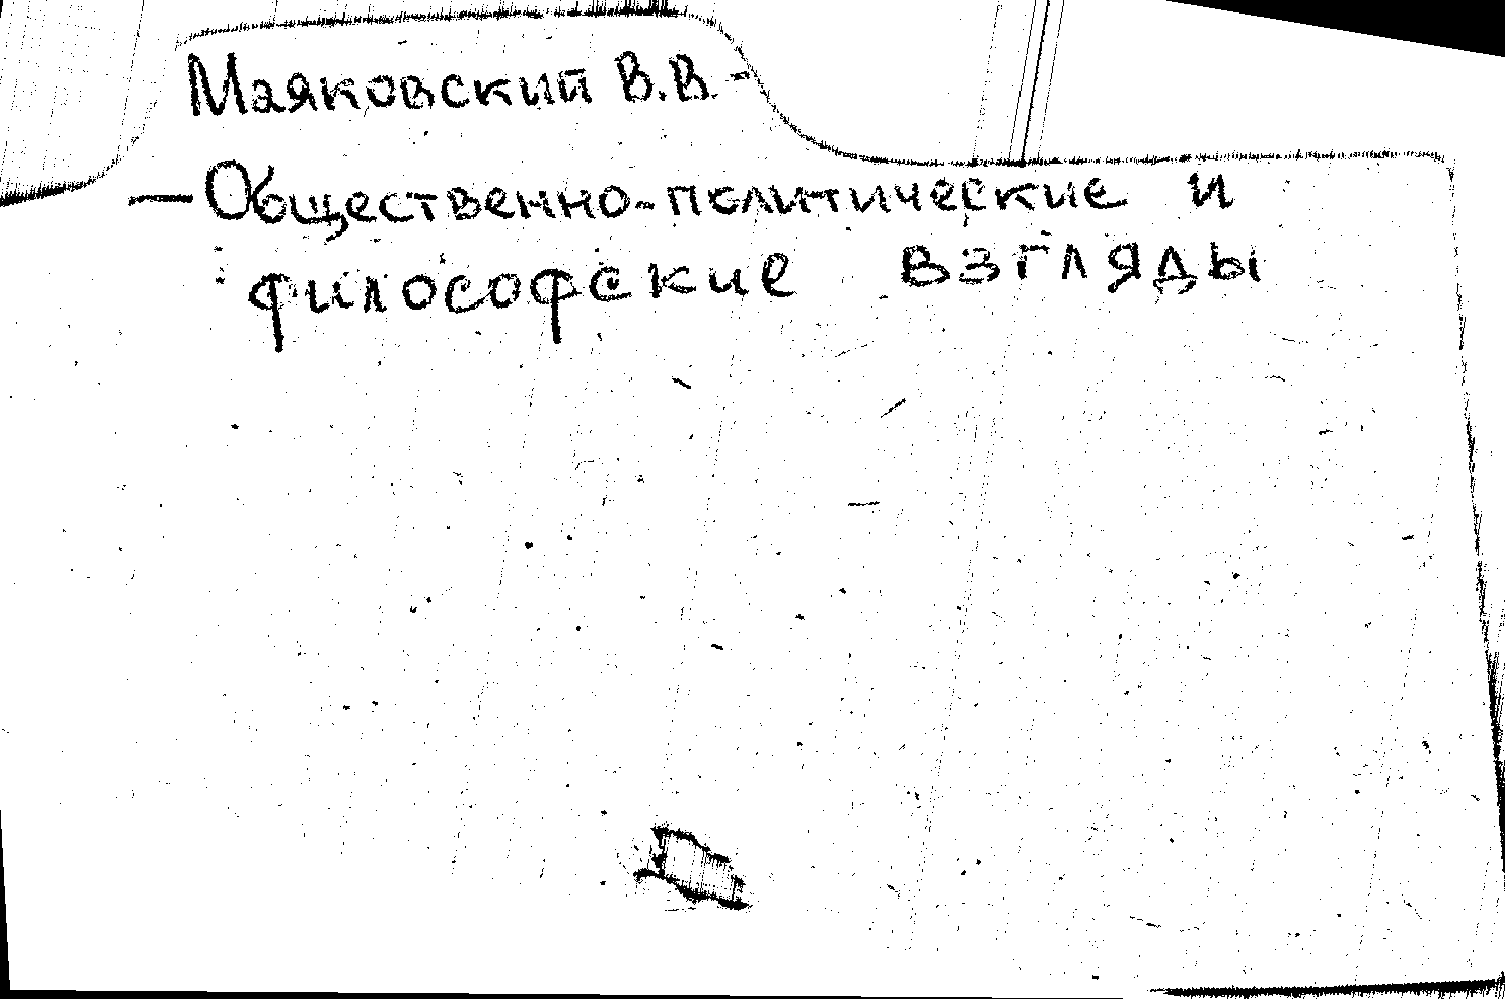 Маяковский В.В -
— Общественно-политические и
философские взгляды